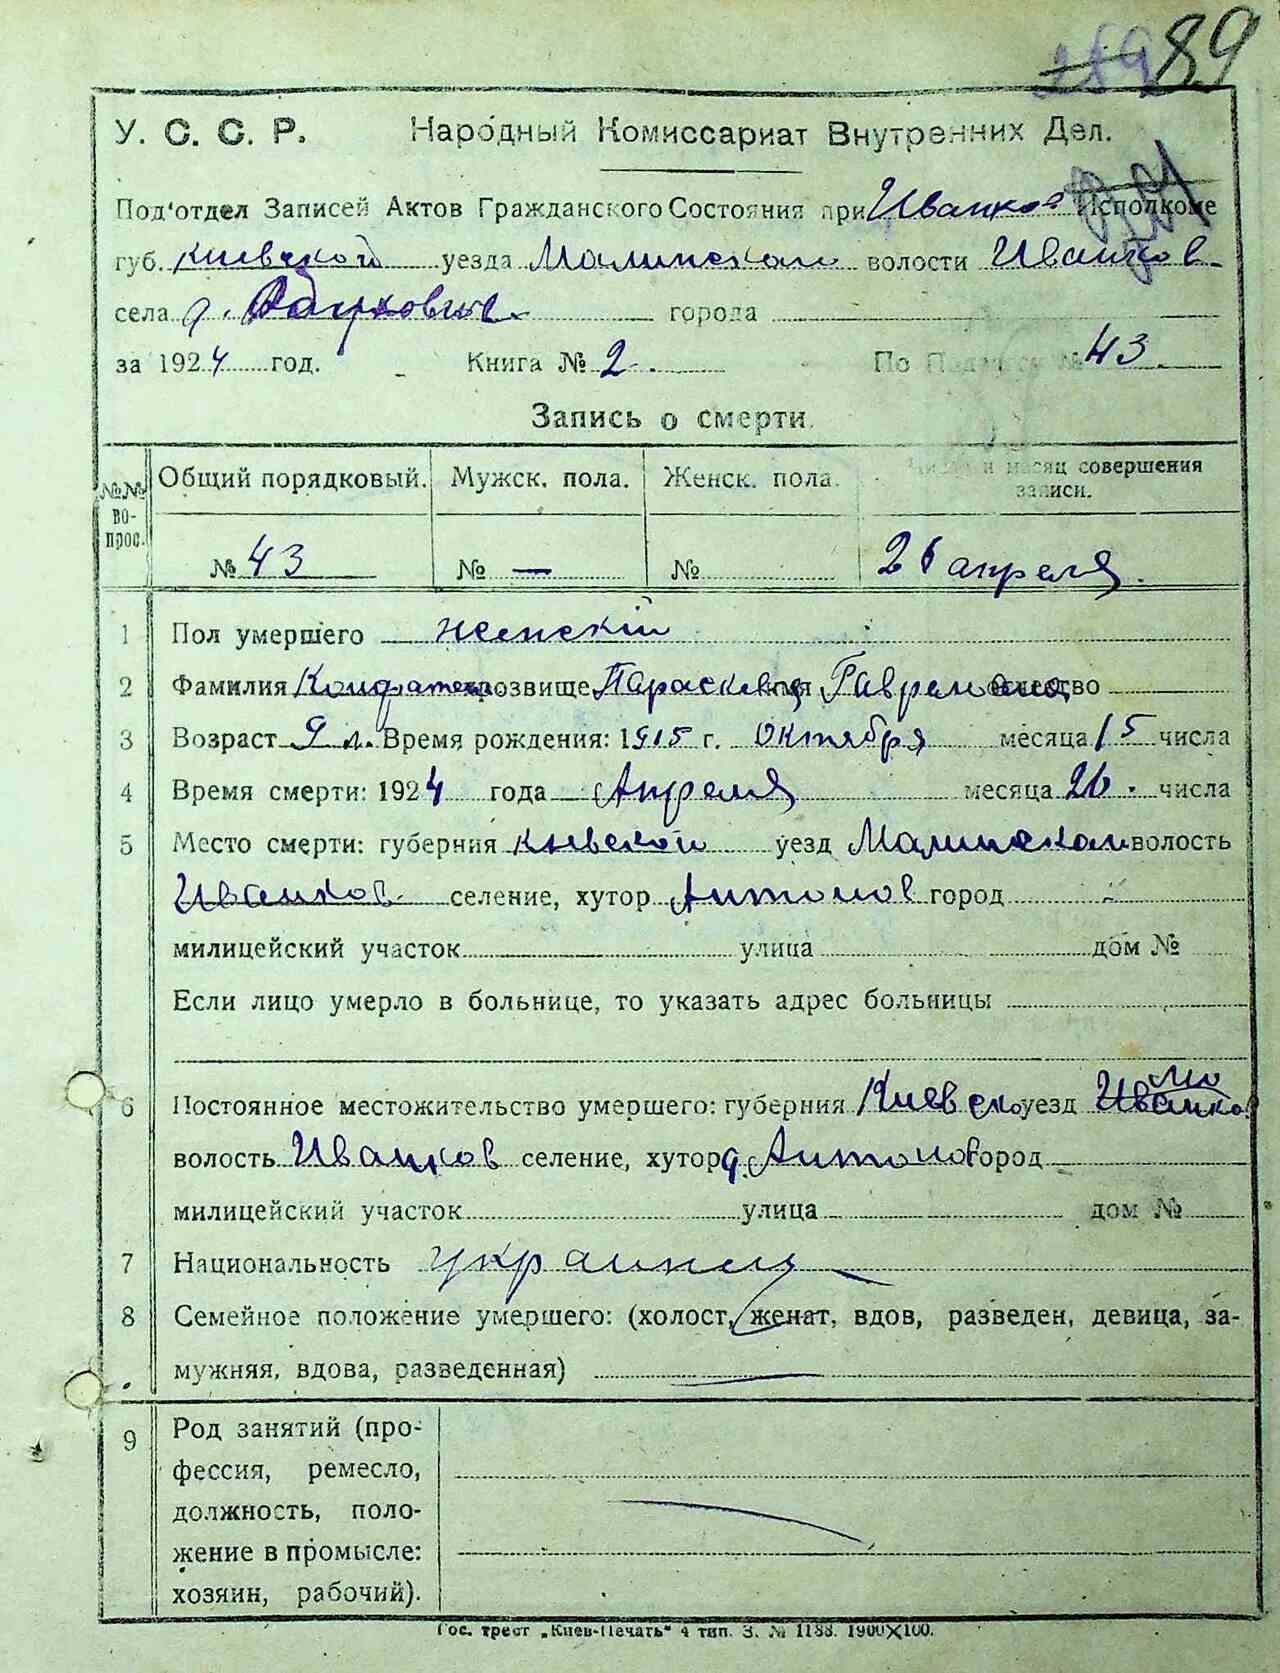 89
У. С. С. Р. Народный Комиссариат Внутренних Дел.
Под'отдел Записей Актов Гражданского Состояния при Иванков Исполкоме
губ. Киевской уезда Малинском волости Иванков
села д. города
за 1924 год. Книга № 2. По № 43
Запись о смерти.
№№ вопрос. Общий порядковый. Мужск. пола. Женск. пола. Число и месяц совершения записи.
№ 43 № — № 26 апреля.
1 Пол умершего женскій
2 Фамилия прозвище Параскева имя отчество
3 Возраст 9 л. Время рождения: 1915 г. Октября месяца 15 числа
4 Время смерти: 1924 года Апреля месяца 26. числа
5 Место смерти: губерния Киевской уезд Малинском волость
Иванков селение, хутор Антонов город
милицейский участок улица дом №
Если лицо умерло в больнице, то указать адрес больницы
6 Постоянное местожительство умершего: губерния Киевско уезд
волость Иванков селение, хутор д. Антонов город
милицейский участок улица дом №
7 Национальность украинец
8 Семейное положение умершего: (холост, женат, вдов, разведен, девица, за-
мужняя, вдова, разведенная)
9 Род занятий (про-
фессия, ремесло,
должность, поло-
жение в промысле:
хозяин, рабочий).
Гос. трест „Киев-Печать" 4 тип. З. № 1188. 1900×100.